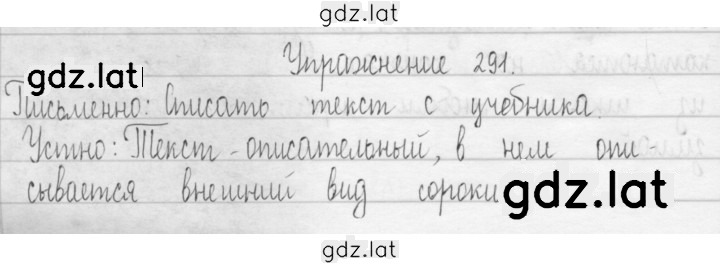 gdz.lat
Упражнение 291.
gdz.lat
Письменно: Списать текст с учебника.
Устно: Текст - описательный, в нем опи-
сывается внешний вид сороки
gdz.lat
gdz.lat